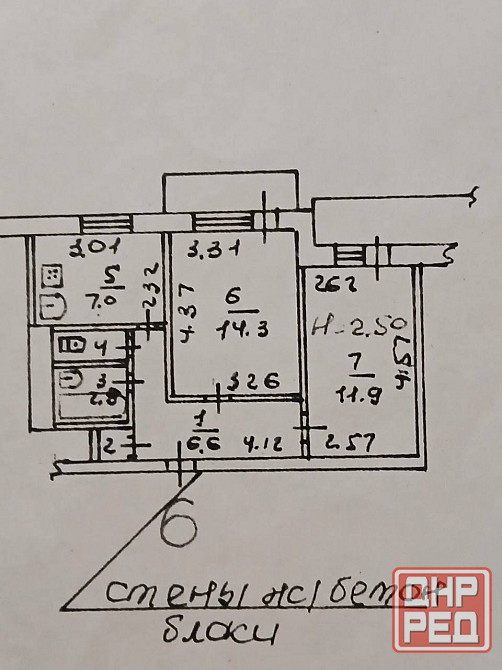 3.01
3.31
5
7.0
2.32
4.37
6
14.3
262
Н-2.50
7
11.9
4.57
4
3
2.8
326
1
6.6
4.12
2.57
2
6
стены ж/бетон
блоки
ДНР
РЕД